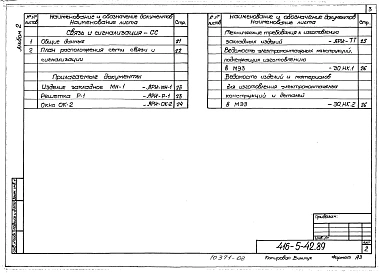 3
Альбом 2
№№ листов
Наименование и обозначение документов
Наименование листа
Стр.
Связь и сигнализация - СС
1 Общие данные 21
2 План расположения сети связи и сигнализации 22
Прилагаемые документы
Изделие закладное МН-1 -АРИ-МН-1 23
Решетка Р-1 -АРИ-Р-1 23
Окно ОК-2 -АРИ-ОК-2 24
№№ листов
Наименование и обозначение документов
Наименование листа
Стр.
Технические требования к изготовлению
закладных изделий -АРИ-ТТ 25
Ведомость электромонтажных конструкций,
подлежащих изготовлению
в МЭЗ -ЭО.НК.1 26
Ведомость изделий и материалов
для изготовления электромонтажных
конструкций и деталей
в МЭЗ -ЭО.НК.2 26
Привязан
416-5-42.89
Лист
2
10371-02
Копировал
Формат А3